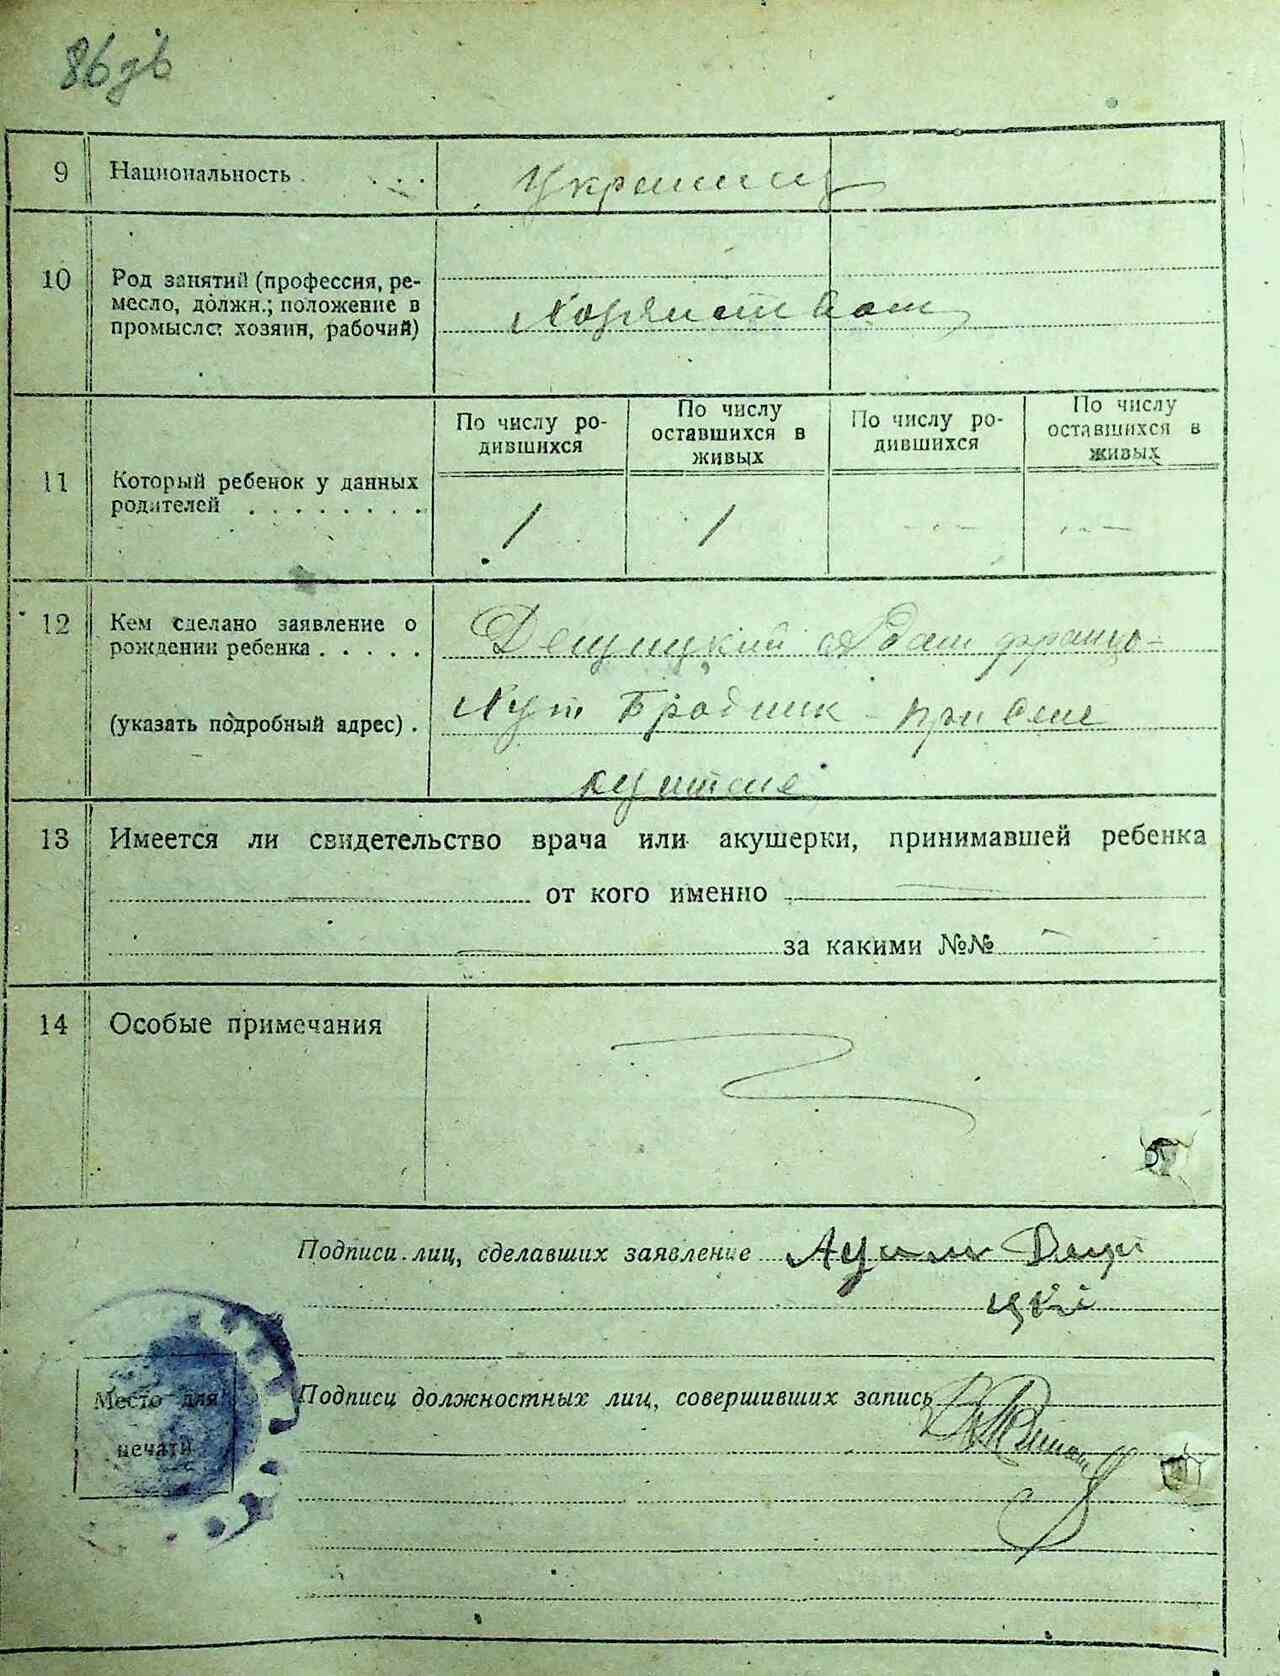 9 Национальность . . . .
10 Род занятий (профессия, ре-
месло, должн.; положение в
промысле: хозяин, рабочий)
По числу ро-
дившихся
По числу
оставшихся в
живых
По числу ро-
дившихся
По числу
оставшихся в
живых
11 Который ребенок у данных
родителей . . . . . . . .
1 1 - -
12 Кем сделано заявление о
рождении ребенка . . . . .
Адам
(указать подробный адрес) .
Хут Бродник
13 Имеется ли свидетельство врача или акушерки, принимавшей ребенка
от кого именно
за какими №№
14 Особые примечания
Подписи лиц, сделавших заявление
цкі
Место для
печати
Подписи должностных лиц, совершивших запись